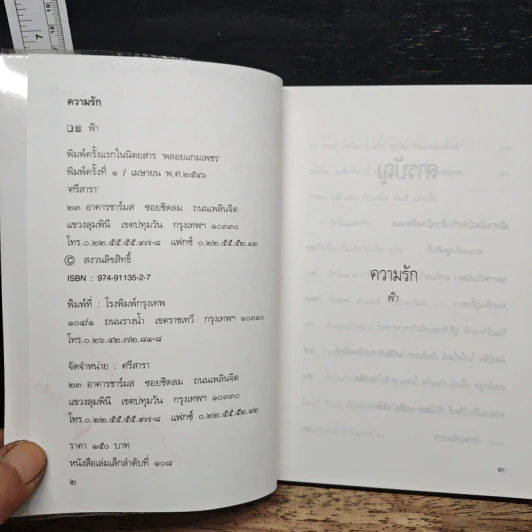 ความรัก
ฟ้า
พิมพ์ครั้งแรกในนิตยสาร 'พลอยแกมเพชร'
พิมพ์ครั้งที่ ๑ / เมษายน พ.ศ.๒๕๔๖
'ศรีสารา'
๒๓ อาคารชาร์มส ซอยชิดลม ถนนเพลินจิต
แขวงลุมพินี เขตปทุมวัน กรุงเทพฯ ๑๐๓๓๐
โทร.๐.๒๒.๕๕.๕๕.๙๗-๘ แฟกซ์ ๐.๒๒.๕๕.๕๒.๑๒
© สงวนลิขสิทธิ์
ISBN : 974-91135-2-7
พิมพ์ที่ : โรงพิมพ์กรุงเทพ
๑๐๔/๑ ถนนรางน้ำ เขตราชเทวี กรุงเทพฯ ๑๐๓๑๐
โทร.๐.๒๖.๔๒.๗๒.๘๑-๘
จัดจำหน่าย : ศรีสารา
๒๓ อาคารชาร์มส ซอยชิดลม ถนนเพลินจิต
แขวงลุมพินี เขตปทุมวัน กรุงเทพฯ ๑๐๓๓๐
โทร.๐.๒๒.๕๕.๕๕.๙๗-๘ แฟกซ์ ๐.๒๒.๕๕.๕๒.๑๒
ราคา ๑๕๐ บาท
หนังสือเล่มเล็กลำดับที่ ๑๐๘
๒
ความรัก
ฟ้า
๓